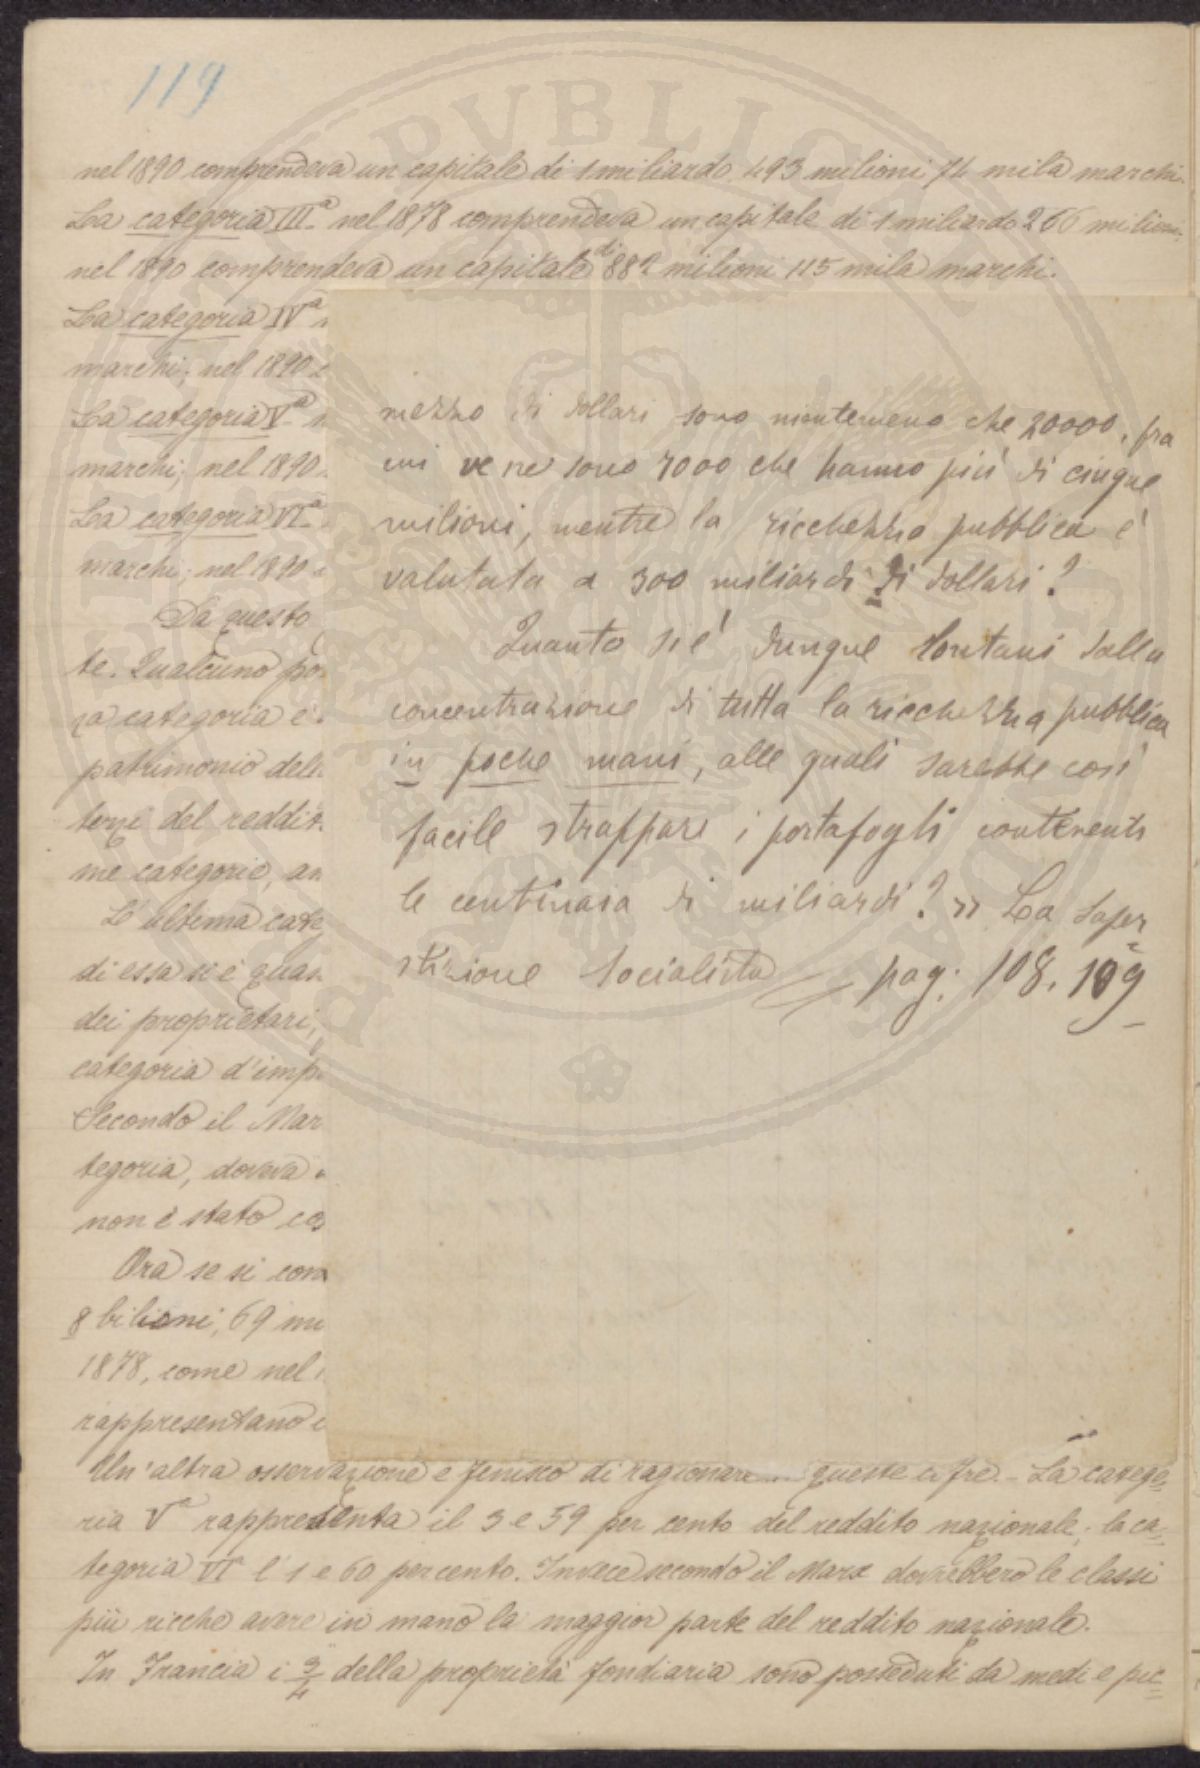 119
nel 1890 comprendeva un capitale di 1 miliardo 493 milioni 74 mila marchi.
La categoria IIIª nel 1878 comprendeva un capitale di 1 miliardo 266 milioni;
nel 1890 comprendeva un capitale di 882 milioni 115 mila marchi.
La categoria IVª
marchi; nel 1890
La categoria Vª
marchi; nel 1890
La categoria VIª
marchi; nel 1890
Da questo
te. Qualcuno po
za categoria è
patrimonio dell
terzi del reddit
me categorie, an
L'ultima cate
di essa si è quas
dei proprietari,
categoria d'imp
Secondo il Mar
tegoria, doveva
non è stato cos
Ora se si con
8 bilioni, 69 mi
1878, come nel
rappresentano
mezzo di dollari sono nientemeno che 20000, fra
cui ve ne sono 7000 che hanno più di cinque
milioni, mentre la ricchezza pubblica è
valutata a 300 miliardi di dollari?
Quanto si è dunque lontani dalla
concentrazione di tutta la ricchezza pubblica
in poche mani, alle quali sarebbe così
facile strappare i portafogli contenenti
le centinaia di miliardi? » La Super
stizione Socialista pag. 108. 109
Un'altra osservazione e finisco di ragionare queste cifre. - La catego=
ria Vª rappresenta il 3 e 59 per cento del reddito nazionale; la ca=
tegoria VIª l'1 e 60 per cento. Invece secondo il Marx dovrebbero le classi
più ricche avere in mano la maggior parte del reddito nazionale.
In Francia i 3/4 della proprietà fondiaria sono posseduti da medi e pic=
PVBLICA